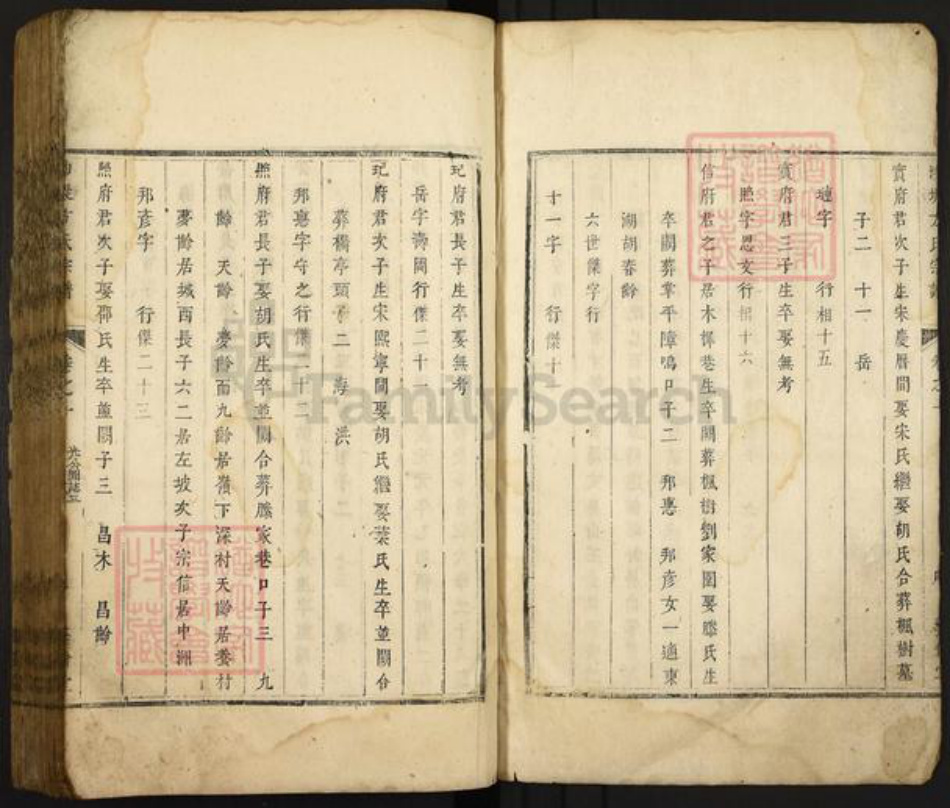 賓府君次子生宋慶曆間娶宋氏繼娶胡氏合葬楓樹墓
子二 十一 岳
璉字 行相十五
賓府君三子生卒娶無考
照字思文行相十六
信府君之子居木樨巷生卒闕葬楓樹劉家園娶滕氏生
卒闕葬葶平障鳴口子二 邦惠 邦彥女一適東
湖胡春齡
六世傑字行
十一字 行傑十
玘府君長子生卒娶無考
岳字壽岡行傑二十一
玘府君次子生宋熙寧間娶胡氏繼娶葉氏生卒並闕合
葬橋亭頭子二 海 洪
邦惠字守之行傑二十二
照府君長子娶胡氏生卒並闕合葬滕家巷口子三 九
齡 天齡 夢齡而九齡居嶺下深村天齡居委村
夢齡居城西長子六二居左坡次子宗信居中洲
邦彥字 行傑二十三
照府君次子娶鄧氏生卒並闕子三 昌木 昌齡
方氏宗譜
卷之十
FamilySearch